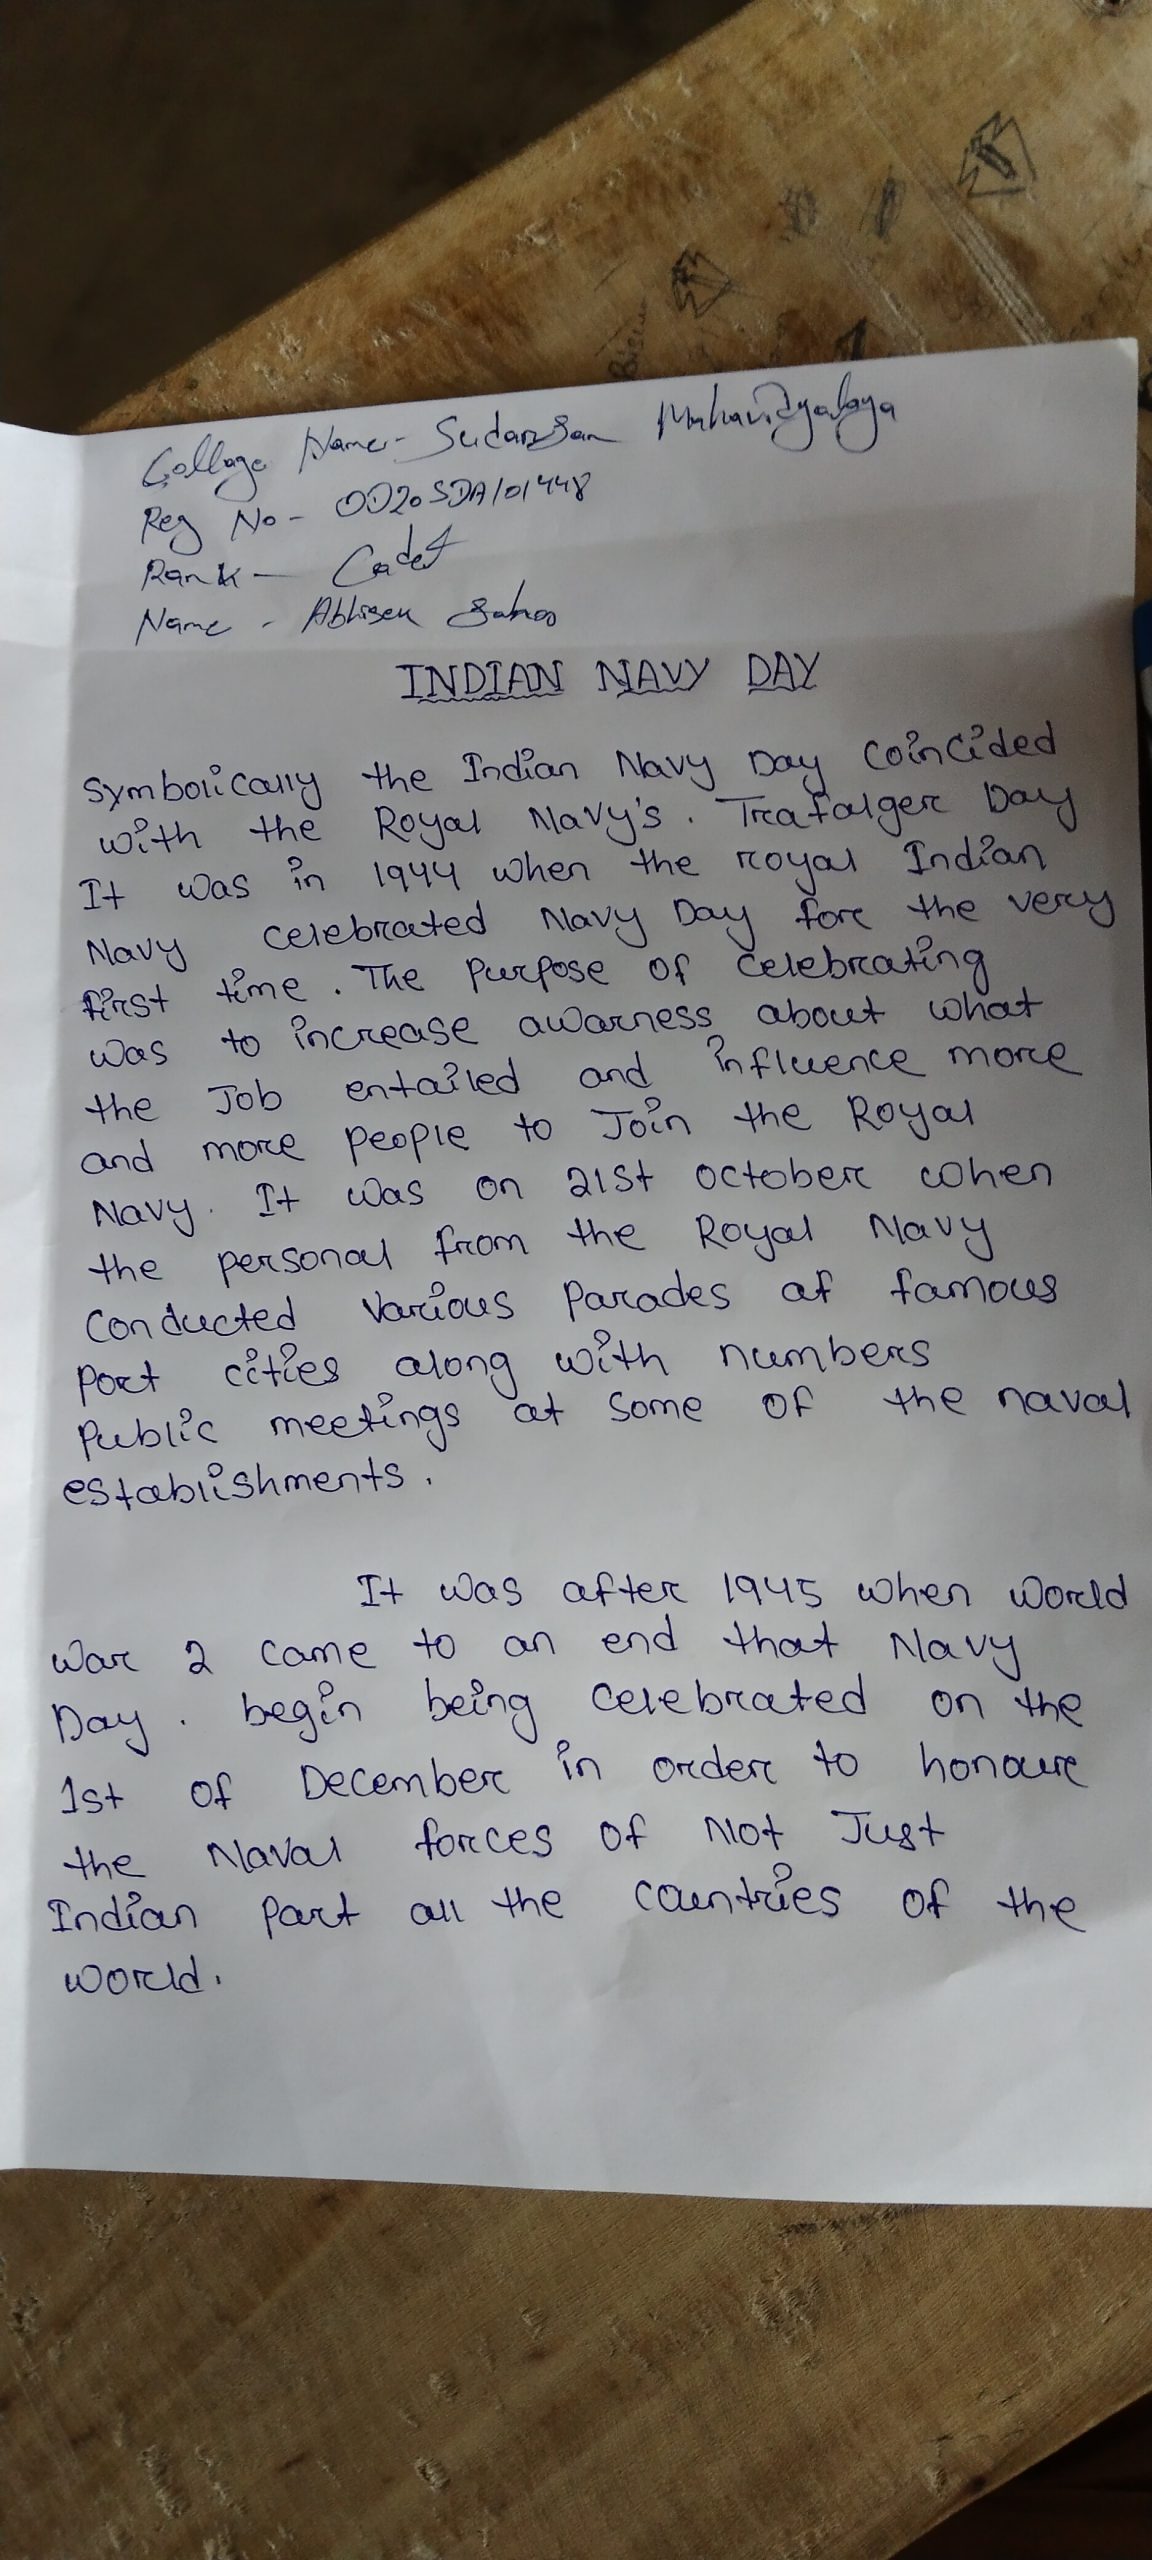 College Name - Sudarsan Mahavidyalaya
Reg No - OD20SDA101448
Rank - Cadet
Name - Abhisek Sahoo
INDIAN NAVY DAY
Symbolically the Indian Navy Day coincided
with the Royal Navy's. Trafalger Day
It was in 1944 when the royal Indian
Navy celebrated Navy Day fore the very
first time. The purpose of celebrating
was to increase awarness about what
the Job entailed and influence more
and more people to Join the Royal
Navy. It was on 21st october when
the personal from the Royal Navy
conducted various parades af famous
port cities along with numbers
public meetings at some of the naval
establishments.
It was after 1945 when world
war 2 came to an end that Navy
Day. begin being celebrated on the
1st of December in order to honoure
the Naval forces of Not Just
Indian part all the countries of the
world.